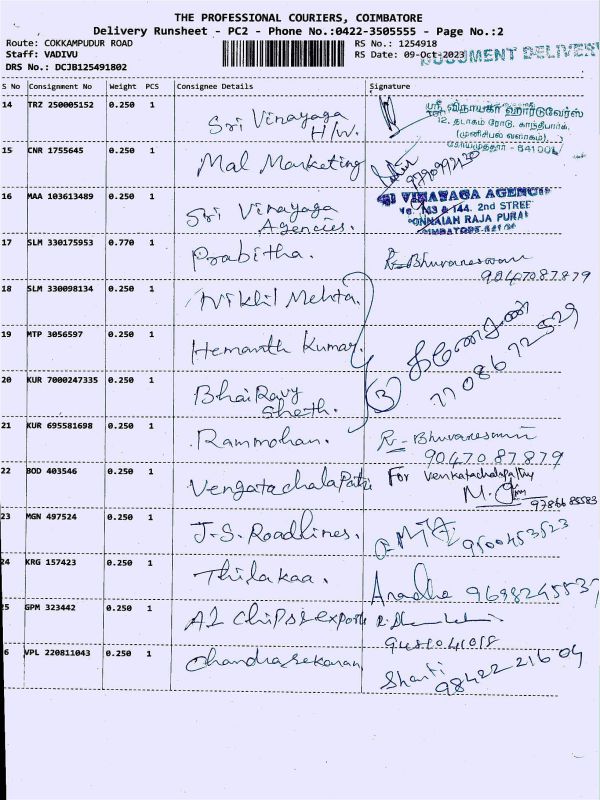 THE PROFESSIONAL COURIERS, COIMBATORE
Delivery Runsheet - PC2 - Phone No.:0422-3505555 - Page No.:2
Route: COKKAMPUDUR ROAD RS No.: 1254918
Staff: VADIVU RS Date: 09-Oct-2023 DOCUMENT DELIVERY
DRS No.: DCJB125491802
S No Consignment No Weight PCS Consignee Details Signature
14 TRZ 250005152 0.250 1 Sri Vinayaga
H/W.
ஸ்ரீ விநாயகா ஹார்டுவேர்ஸ்
12, தடாகம் ரோடு, காந்திபார்க்,
(முனிசிபல் வளாகம்),
கோயமுத்தூர் - 641001
15 CNR 1755645 0.250 1 Mal Marketing
16 MAA 103613489 0.250 1 Sri Vinayaga
Agencies.
SRI VINAYAGA AGENCIES
No. 143 & 144, 2nd STREET
PONNAIAH RAJA PURAM
COIMBATORE
17 SLM 330175953 0.770 1 Prabitha. R-Bhuvaneswari
9047087879
18 SLM 330098134 0.250 1 Nikhil Mehta.
19 MTP 3056597 0.250 1 Hemanth Kumar.
கணேசன்
3 7708672529
20 KUR 7000247335 0.250 1 BhaiRavy
Sheth.
21 KUR 695581698 0.250 1 Rammohan. R-Bhuvaneswari
9047087879
22 BOD 403546 0.250 1 Vengatachalapathi For Venkatachalapathy
9786685583
23 MGN 497524 0.250 1 J.S. Roadlines. 9500453523
24 KRG 157423 0.250 1 Thilakaa. Aradha 9698245537
25 GPM 323442 0.250 1 A1 chips & exports
9481041018
26 VPL 220811043 0.250 1 Chandrasekaran Shanti
98422 21604